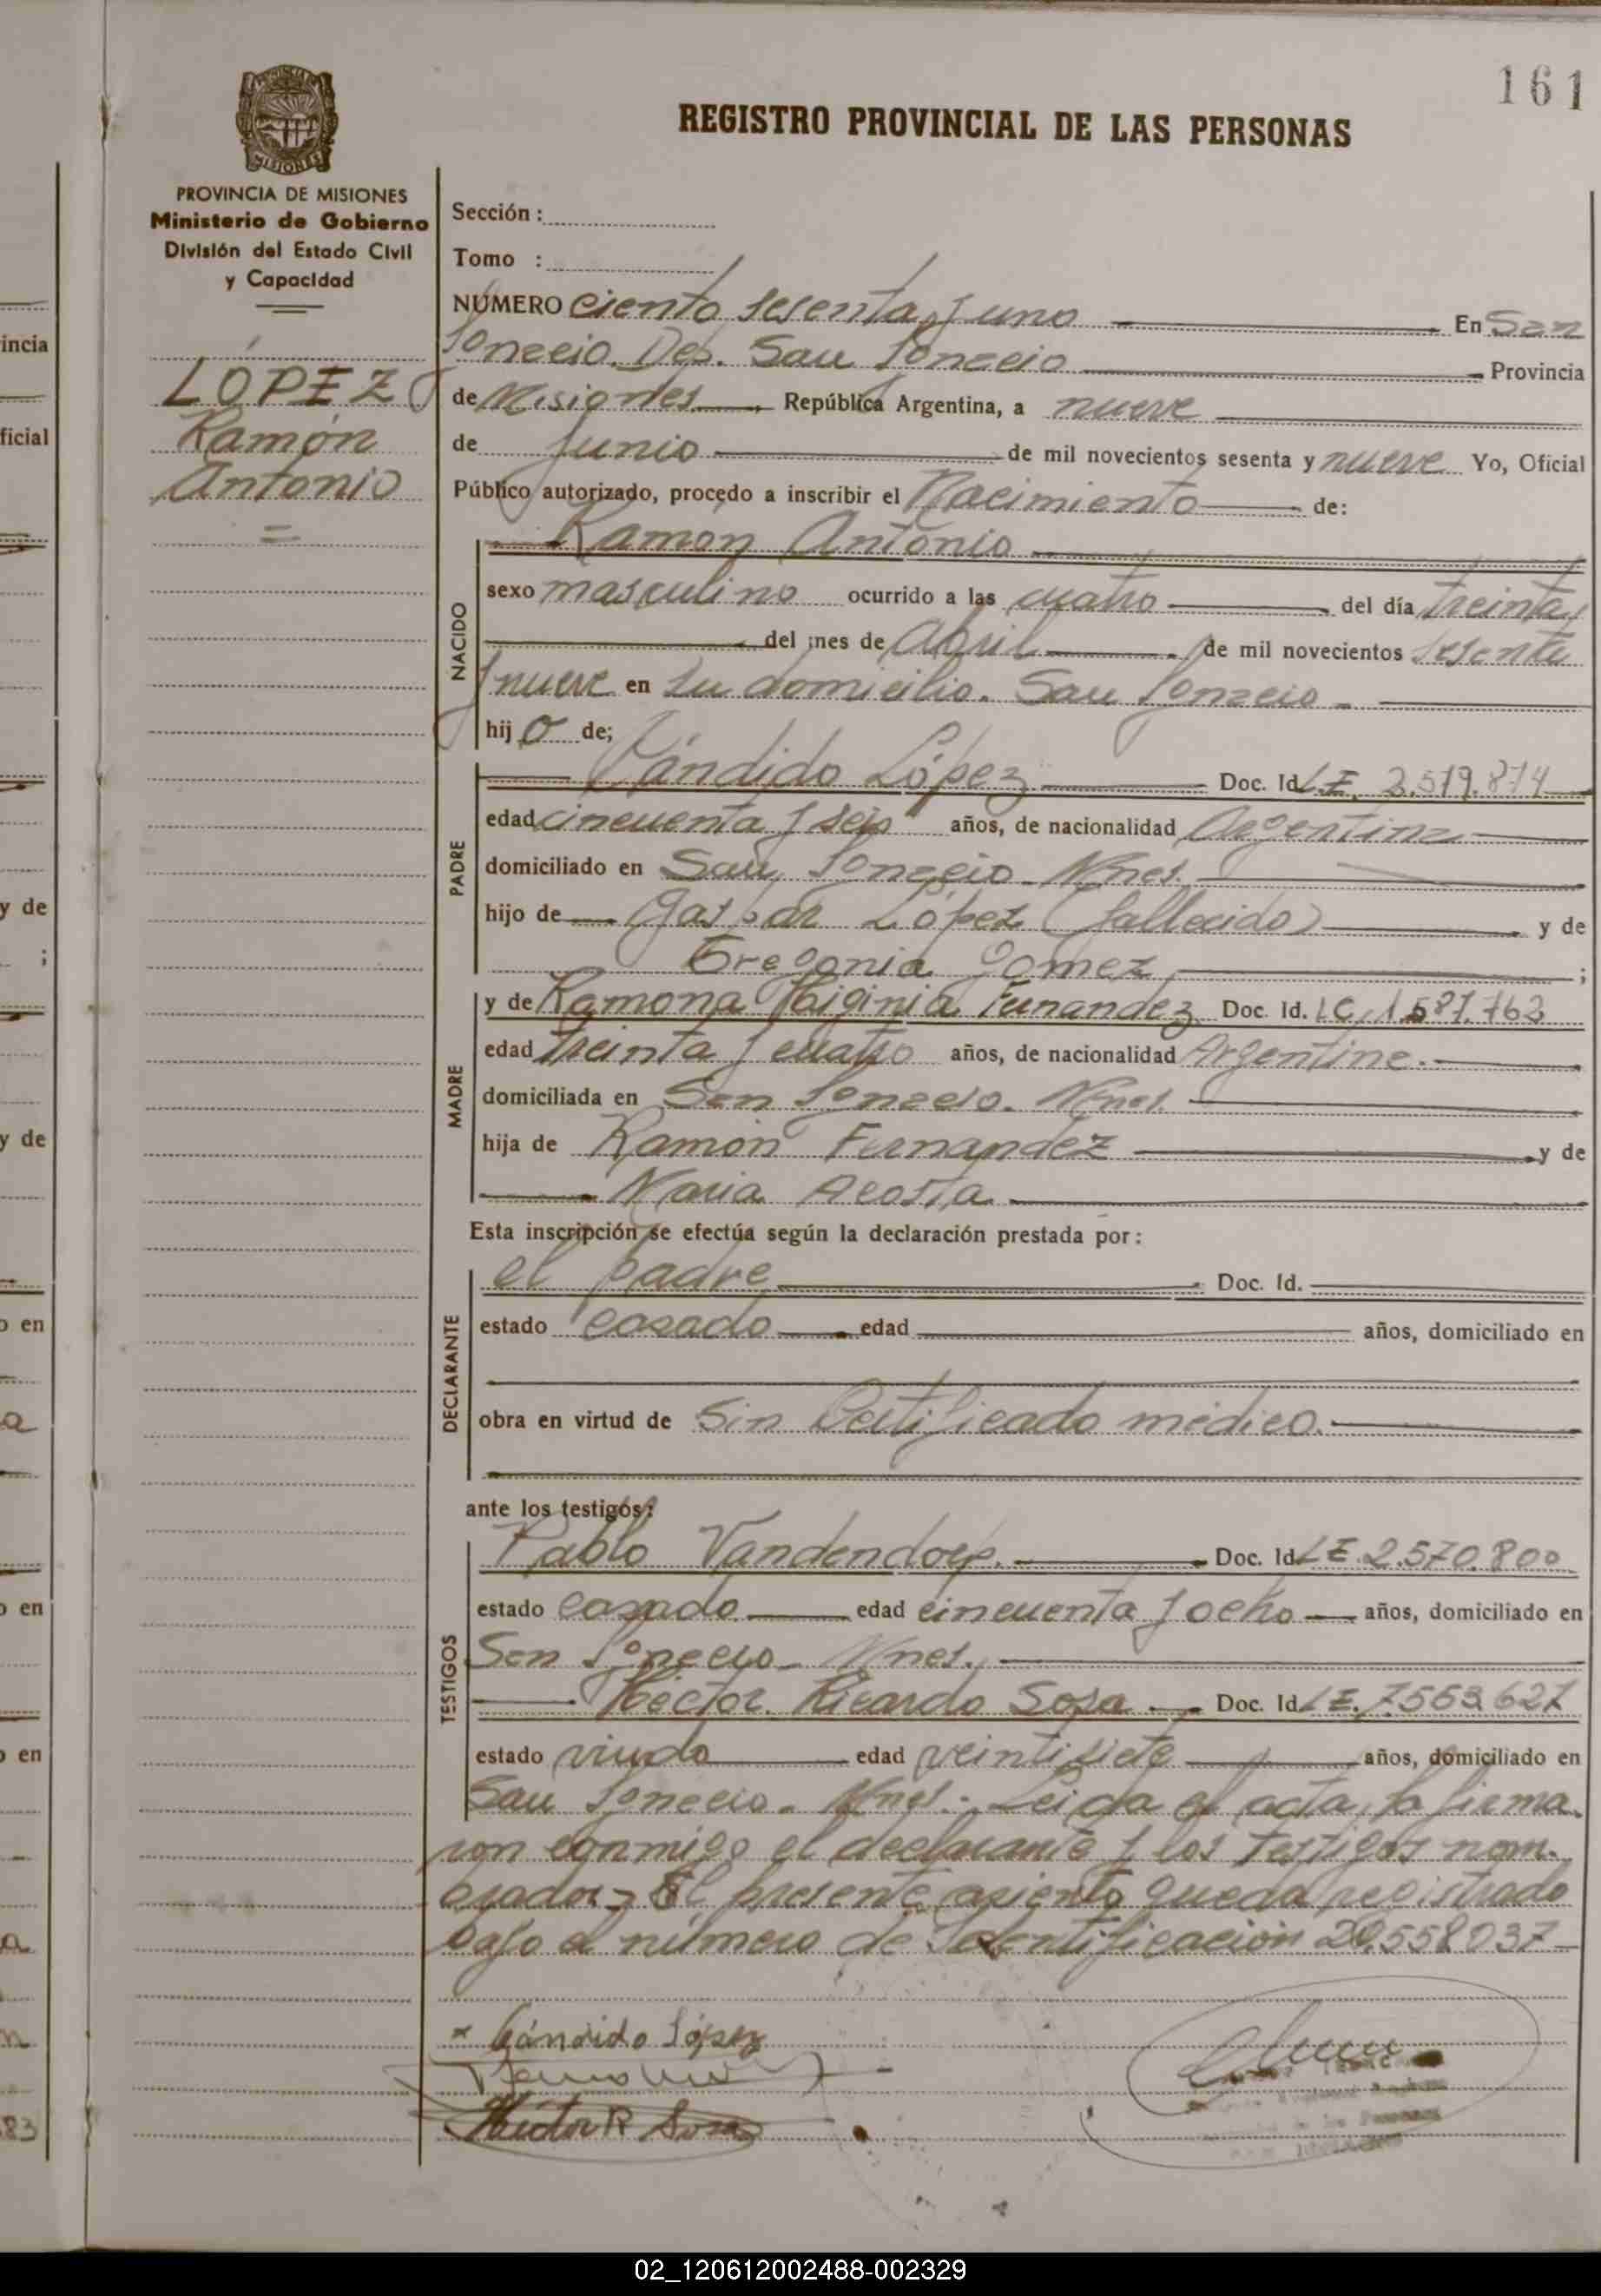 161
REGISTRO PROVINCIAL DE LAS PERSONAS
PROVINCIA DE MISIONES
Ministerio de Gobierno
División del Estado Civil
y Capacidad
LÓPEZ
Ramón
Antonio
Sección :
Tomo :
NUMERO ciento sesenta y uno En San
Ignacio. Dep. San Ignacio Provincia
de Misiones República Argentina, a nueve
de Junio de mil novecientos sesenta y nueve Yo, Oficial
Público autorizado, procedo a inscribir el Nacimiento de:
Ramón Antonio
NACIDO
sexo masculino ocurrido a las cuatro del día treinta
del mes de Abril de mil novecientos sesenta
y nueve en su domicilio. San Ignacio
hijo de;
PADRE
Cándido López Doc. Id. L.E. 3.519.874
edad cincuenta y seis años, de nacionalidad Argentina
domiciliado en San Ignacio Mnes.
hijo de Gaspar López (fallecido) y de
Gregoria Gomez ;
MADRE
y de Ramona Higinia Fernandez Doc. Id. LC. 1.587.763
edad treinta y cuatro años, de nacionalidad Argentina.
domiciliada en San Ignacio. Mnes.
hija de Ramón Fernandez y de
Maria Acosta
Esta inscripción se efectúa según la declaración prestada por :
DECLARANTE
el padre Doc. Id.
estado casado edad años, domiciliado en
obra en virtud de Sin Certificado médico.
ante los testigos:
TESTIGOS
Pablo Vandendorp. Doc. Id. LE 2.570.800
estado casado edad cincuenta y ocho años, domiciliado en
San Ignacio Mnes.
Héctor Ricardo Sosa Doc. Id. LE. 7.563.627
estado viudo edad veintisiete años, domiciliado en
San Ignacio. Mnes. Leida el acta, la firma
ron conmigo el declarante y los testigos nom-
brados El presente asiento queda registrado
bajo el número de Identificación 20.558037
Cándido López
Héctor R Sosa
incia
ficial
y de
;
y de
o en
a
o en
o en
a
n
83
02_120612002488-002329